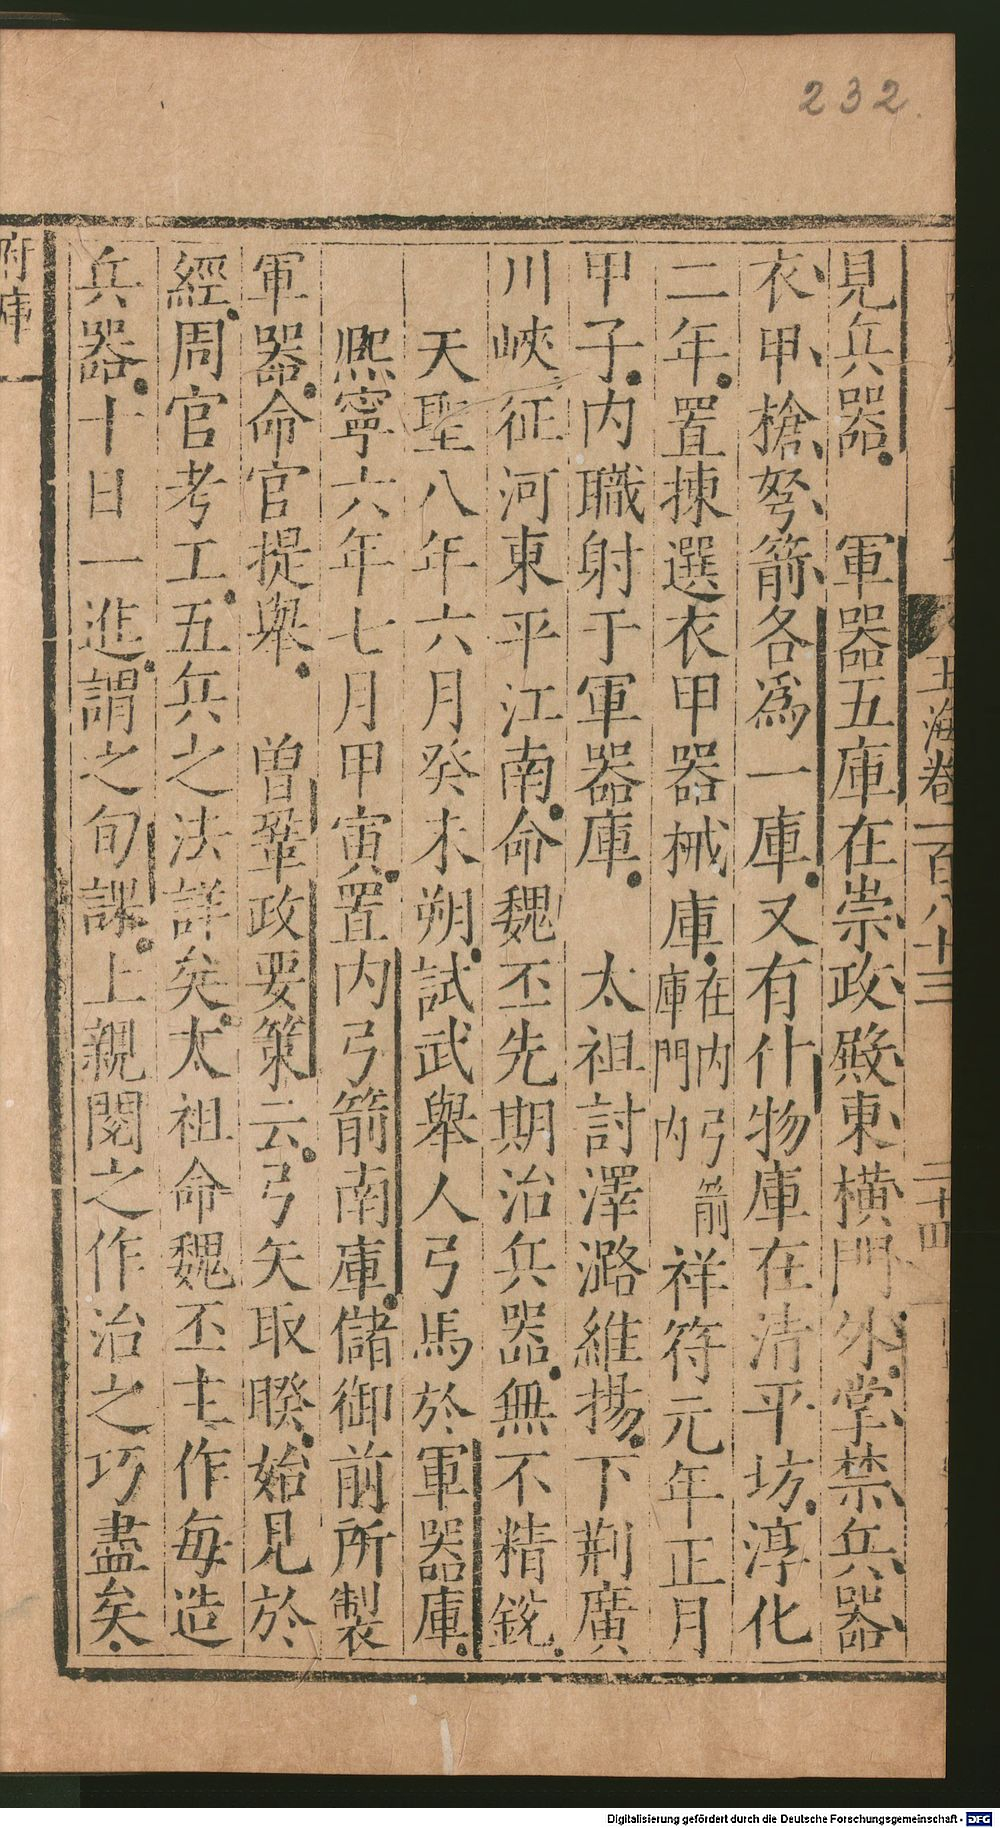 232
玉海卷一百八十三
二十四
見兵器　軍器五庫在崇政殿東橫門外掌禁兵器
衣甲槍弩箭各爲一庫又有什物庫在清平坊淳化
二年置揀選衣甲器械庫在内弓箭庫門内祥符元年正月
甲子内職射于軍器庫　太祖討澤潞維揚下荆廣
川峽征河東平江南命魏丕先期治兵器無不精銳
天聖八年六月癸未朔試武舉人弓馬於軍器庫
熈寧六年七月甲寅置内弓箭南庫儲御前所製
軍器命官提舉　曽鞏政要策云弓矢取睽始見於
經周官考工五兵之法詳矣太祖命魏丕主作每造
兵器十日一進謂之旬課上親閱之作治之巧盡矣
府庫
Digitalisierung gefördert durch die Deutsche Forschungsgemeinschaft - DFG